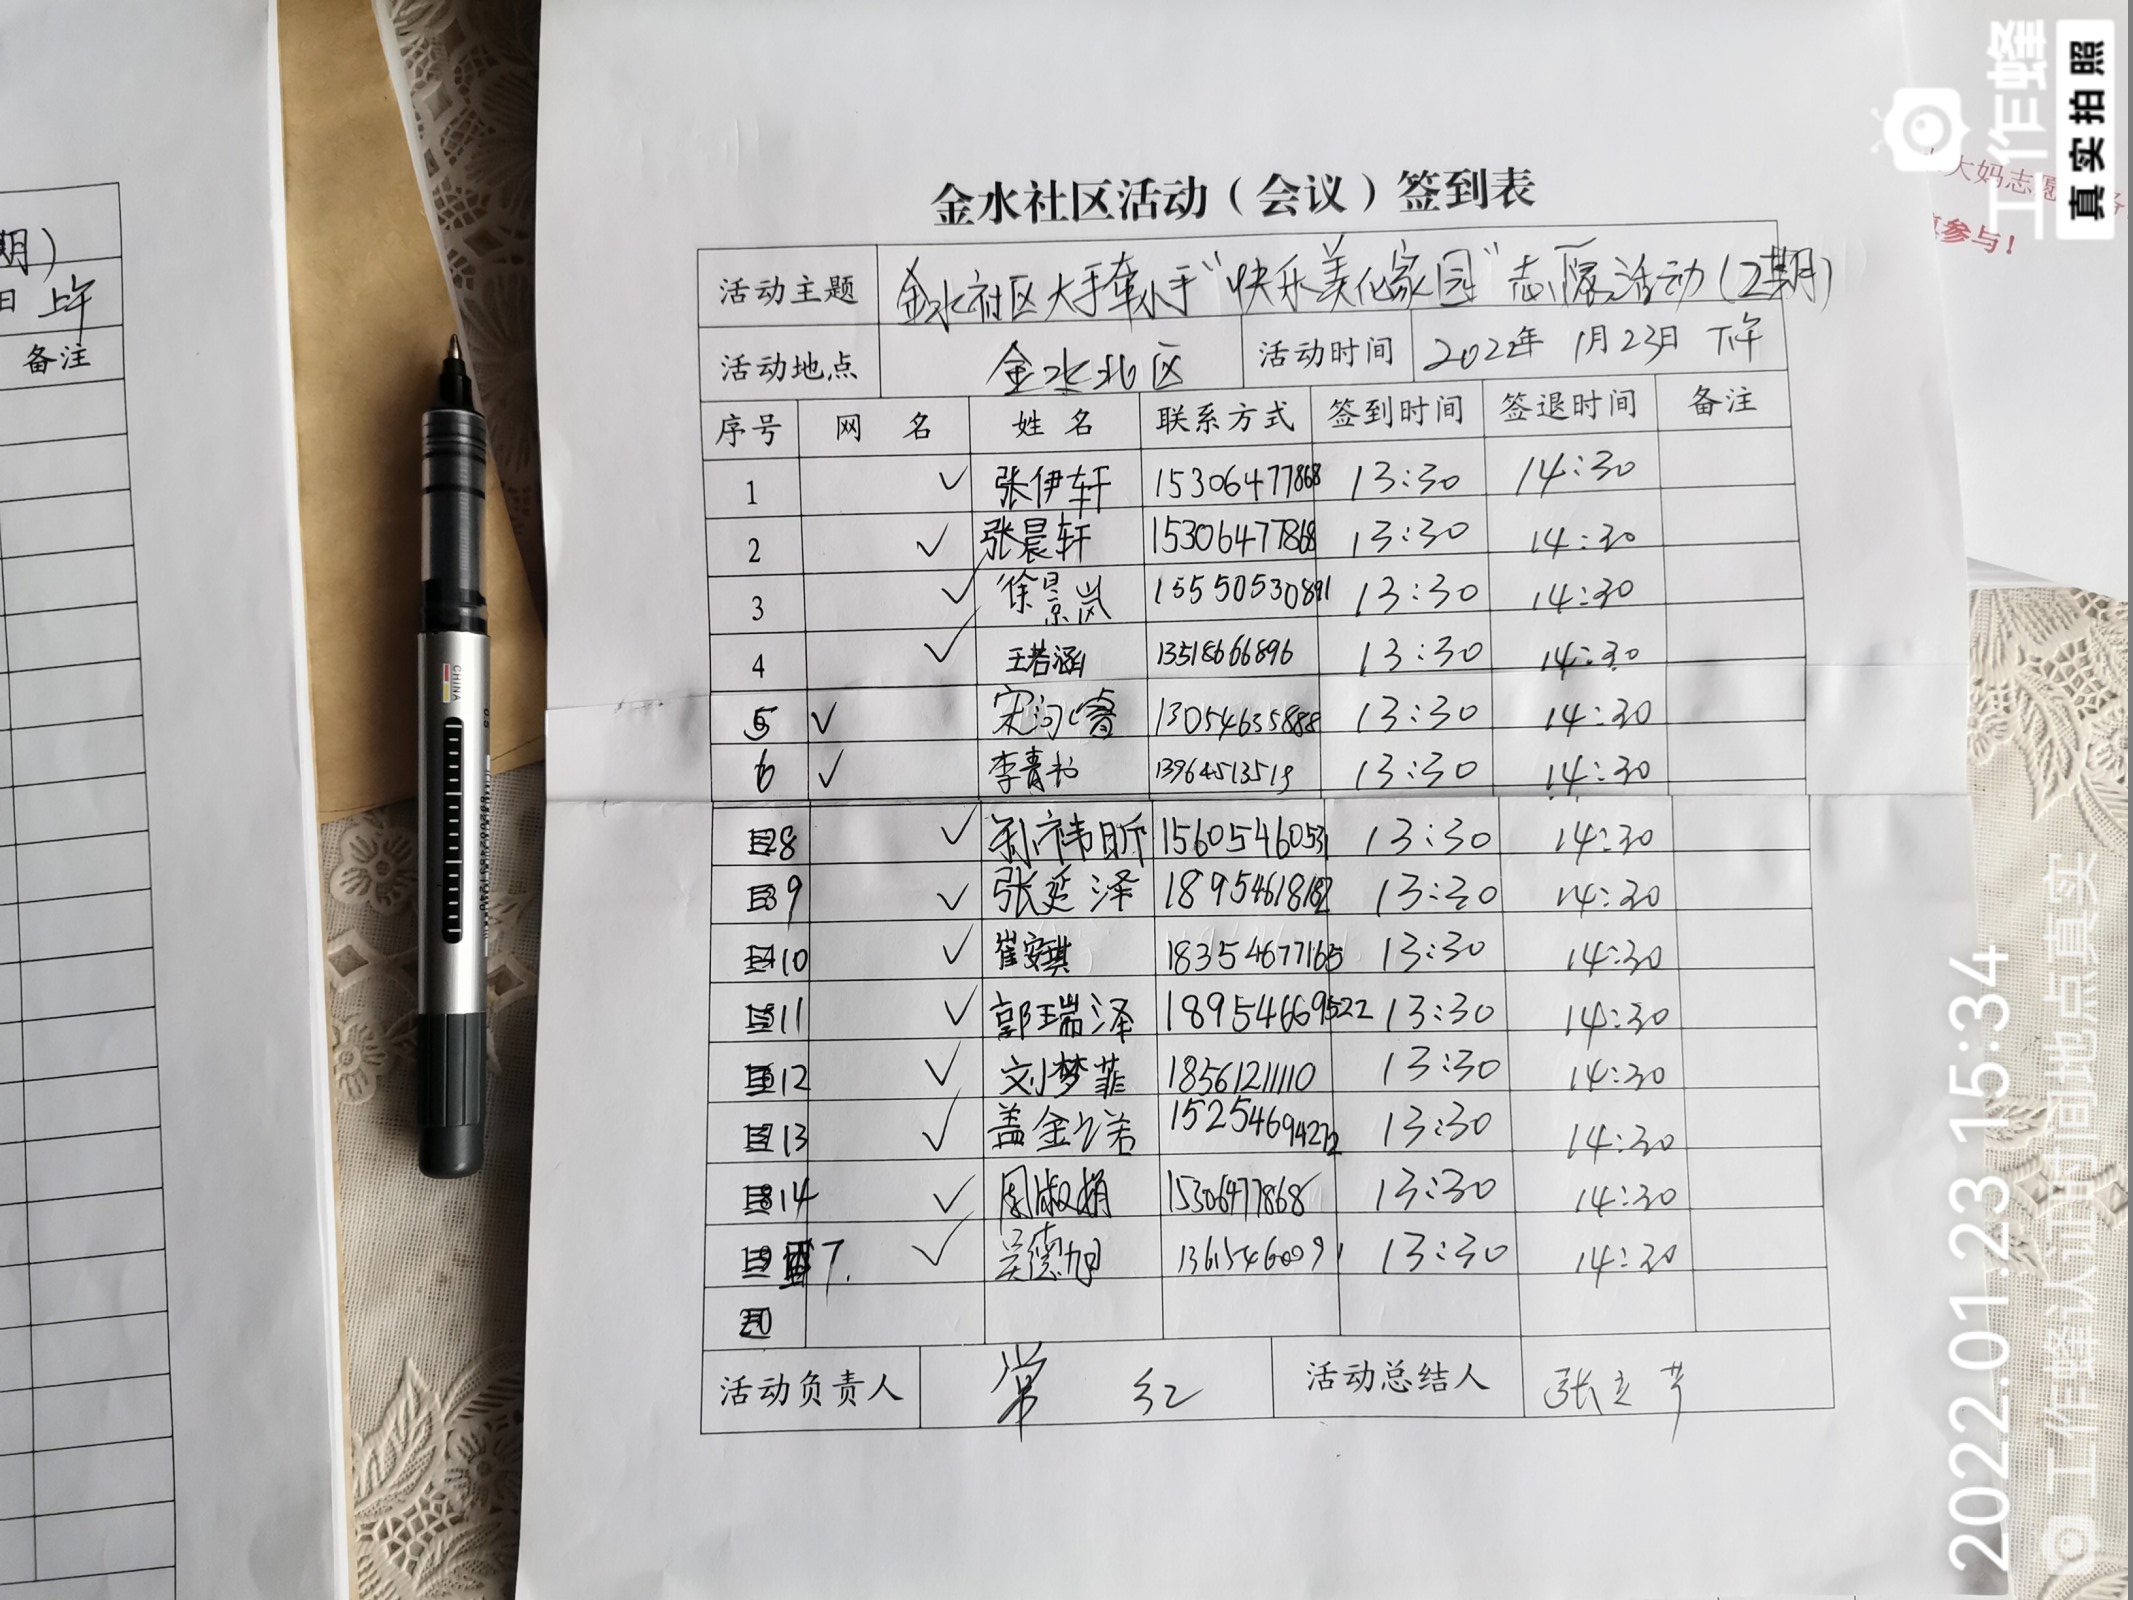 金水社区活动（会议）签到表
活动主题 金水社区大手牵小手“快乐美化家园”志愿活动(2期)
活动地点 金水北区 活动时间 2022年1月23日 下午
序号 网 名 姓 名 联系方式 签到时间 签退时间 备注
1 ✓ 张伊轩 15306477868 13:30 14:30
2 ✓ 张晨轩 15306477868 13:30 14:30
3 ✓ 徐景岚 15550530891 13:30 14:30
4 ✓ 王若涵 13518666896 13:30 14:30
5 ✓ 宋沁睿 13054635888 13:30 14:30
6 ✓ 李青书 13964513519 13:30 14:30
8 ✓ 孙祎昕 15605460531 13:30 14:30
9 ✓ 张延泽 18954618182 13:30 14:30
10 ✓ 崔安琪 18354677165 13:30 14:30
11 ✓ 郭瑞泽 18954669522 13:30 14:30
12 ✓ 刘梦菲 18561211110 13:30 14:30
13 ✓ 盖金诺 13:30 14:30
14 ✓ 周淑娟 15306477868 13:30 14:30
7. ✓ 吴德旭 13615460091 13:30 14:30
20
活动负责人 常 红 活动总结人 张立芹
期)
日 上午
备注
大妈志愿
参与!
工作蜂
真实拍照
2022.01.23 15:34
工作蜂认证时间地点真实
CHINA